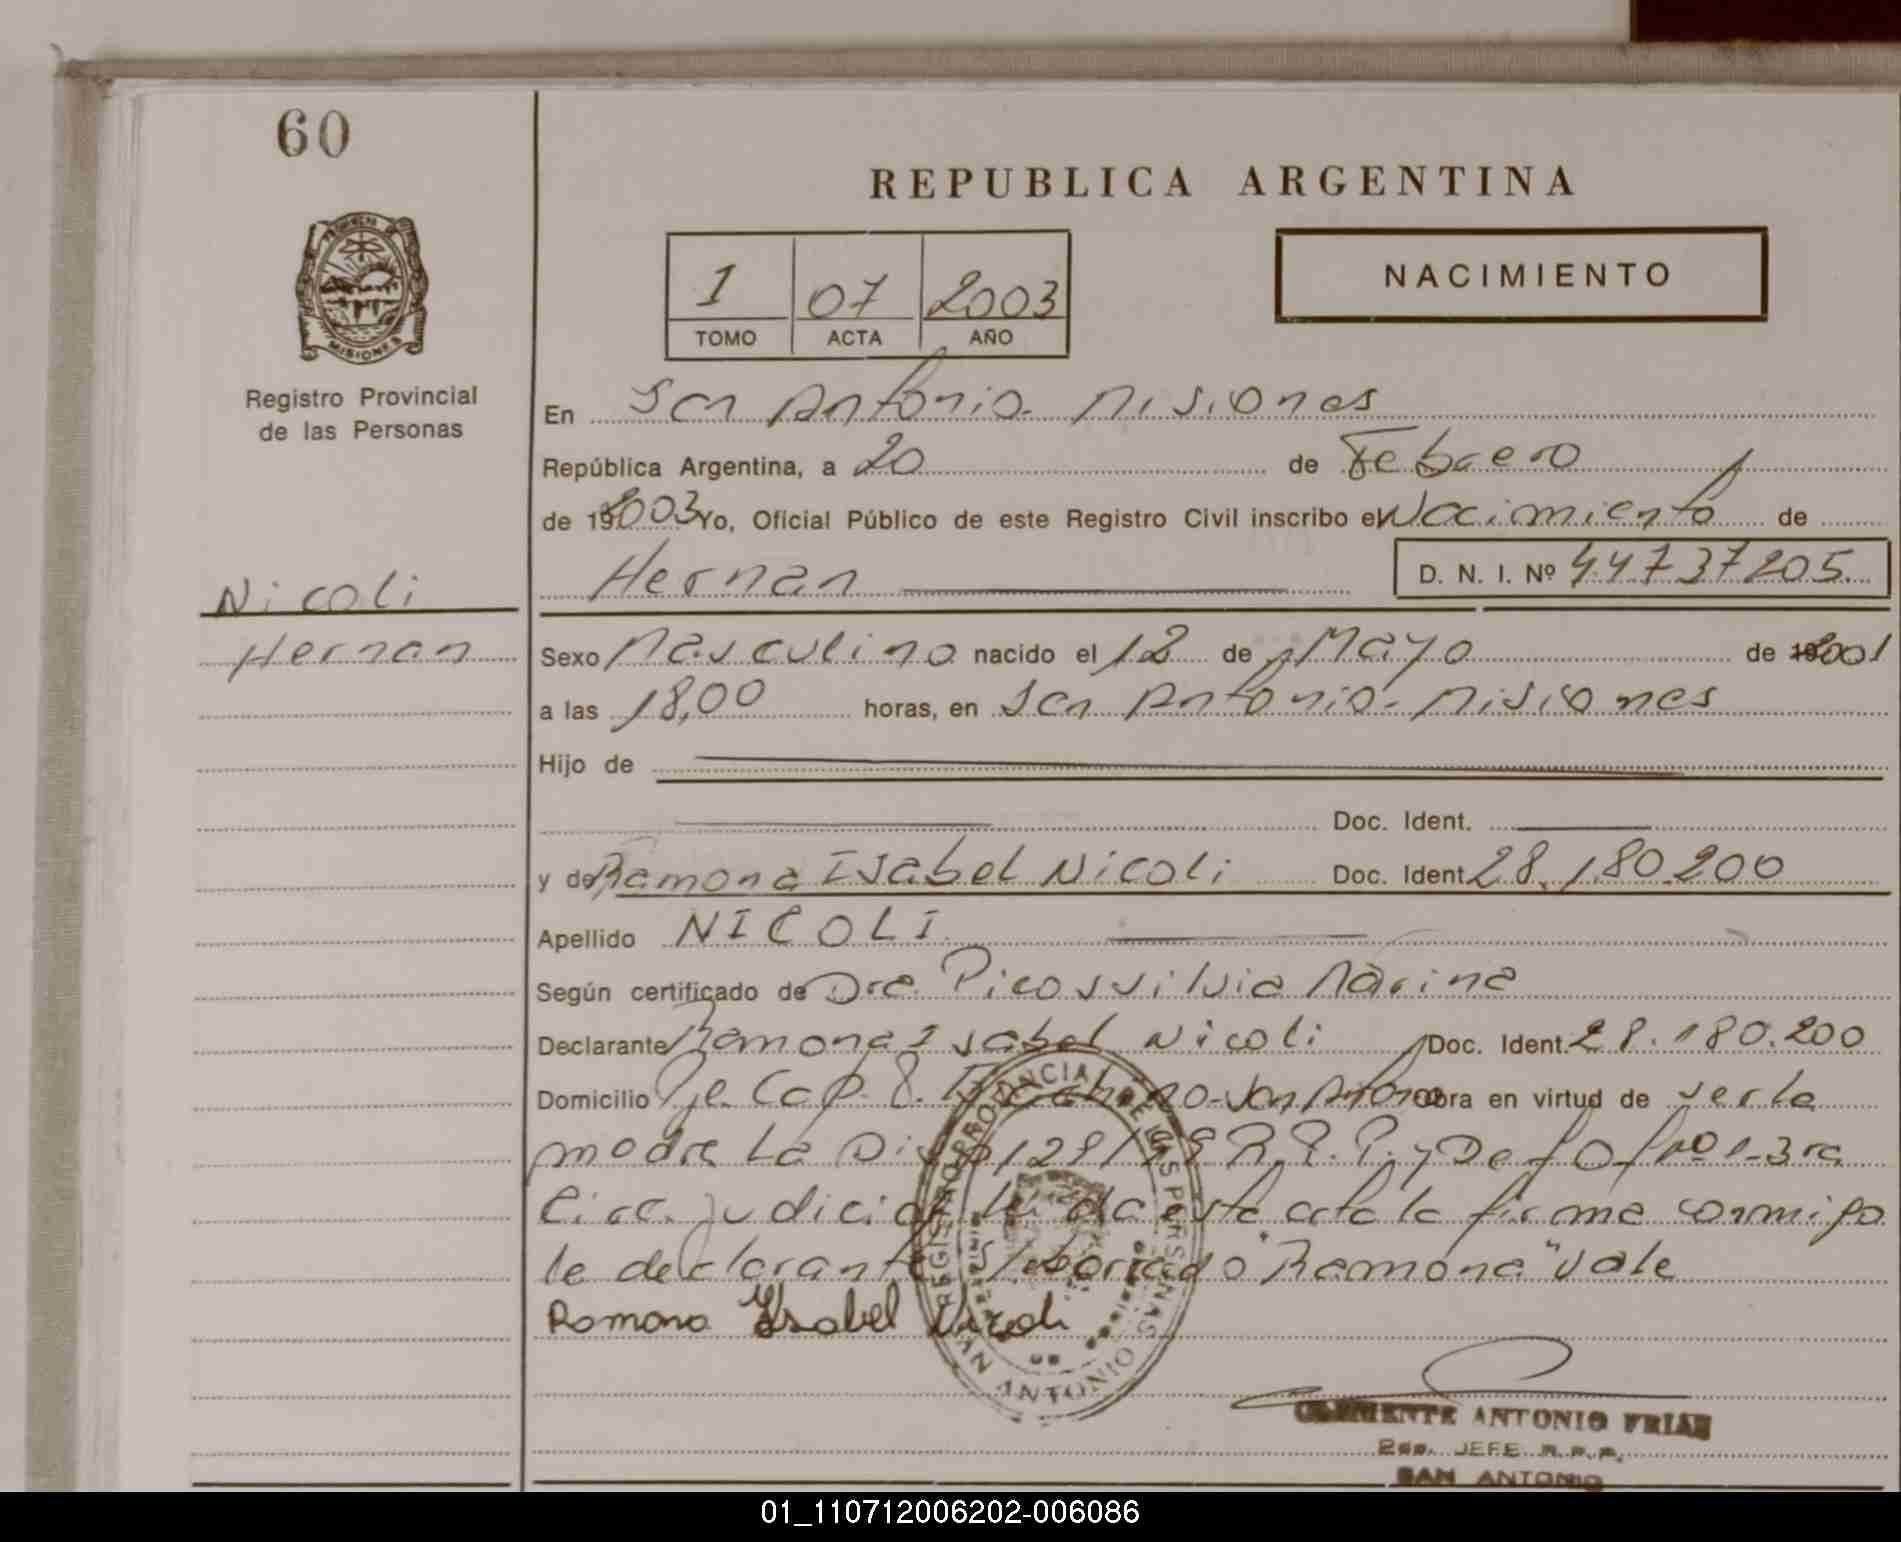 60
REPUBLICA ARGENTINA
PROVINCIA
MISIONES
1 07 2003
TOMO ACTA AÑO
NACIMIENTO
Registro Provincial
de las Personas
En San Antonio. Misiones
República Argentina, a 20 de Febrero
de 19 2003 Yo, Oficial Público de este Registro Civil inscribo el Nacimiento de
Hernan D. N. I. Nº 44737205
Nicoli
Hernan
Sexo Masculino nacido el 12 de Mayo de 2001
a las 18,00 horas, en San Antonio. Misiones
Hijo de
Doc. Ident.
y de Ramona Isabel Nicoli Doc. Ident. 28.180.200
Apellido NICOLI
Según certificado de Dra. Picos Silvia Marina
Declarante Ramona Isabel Nicoli Doc. Ident. 28.180.200
Domicilio Pje Cap. San Antonio Obra en virtud de ser la
madre La Disp 128/ R.P.P. y Def Of Nº 1-3ra
Circ. Judicial esta acta la firma conmigo
la declarante S/borrado "Ramona" Vale
Ramona Ysabel Nicoli
REGISTRO PROVINCIAL DE LAS PERSONAS
SAN ANTONIO
CLEMENTE ANTONIO FRIAS
2do. JEFE R.P.P.
SAN ANTONIO
01_110712006202-006086